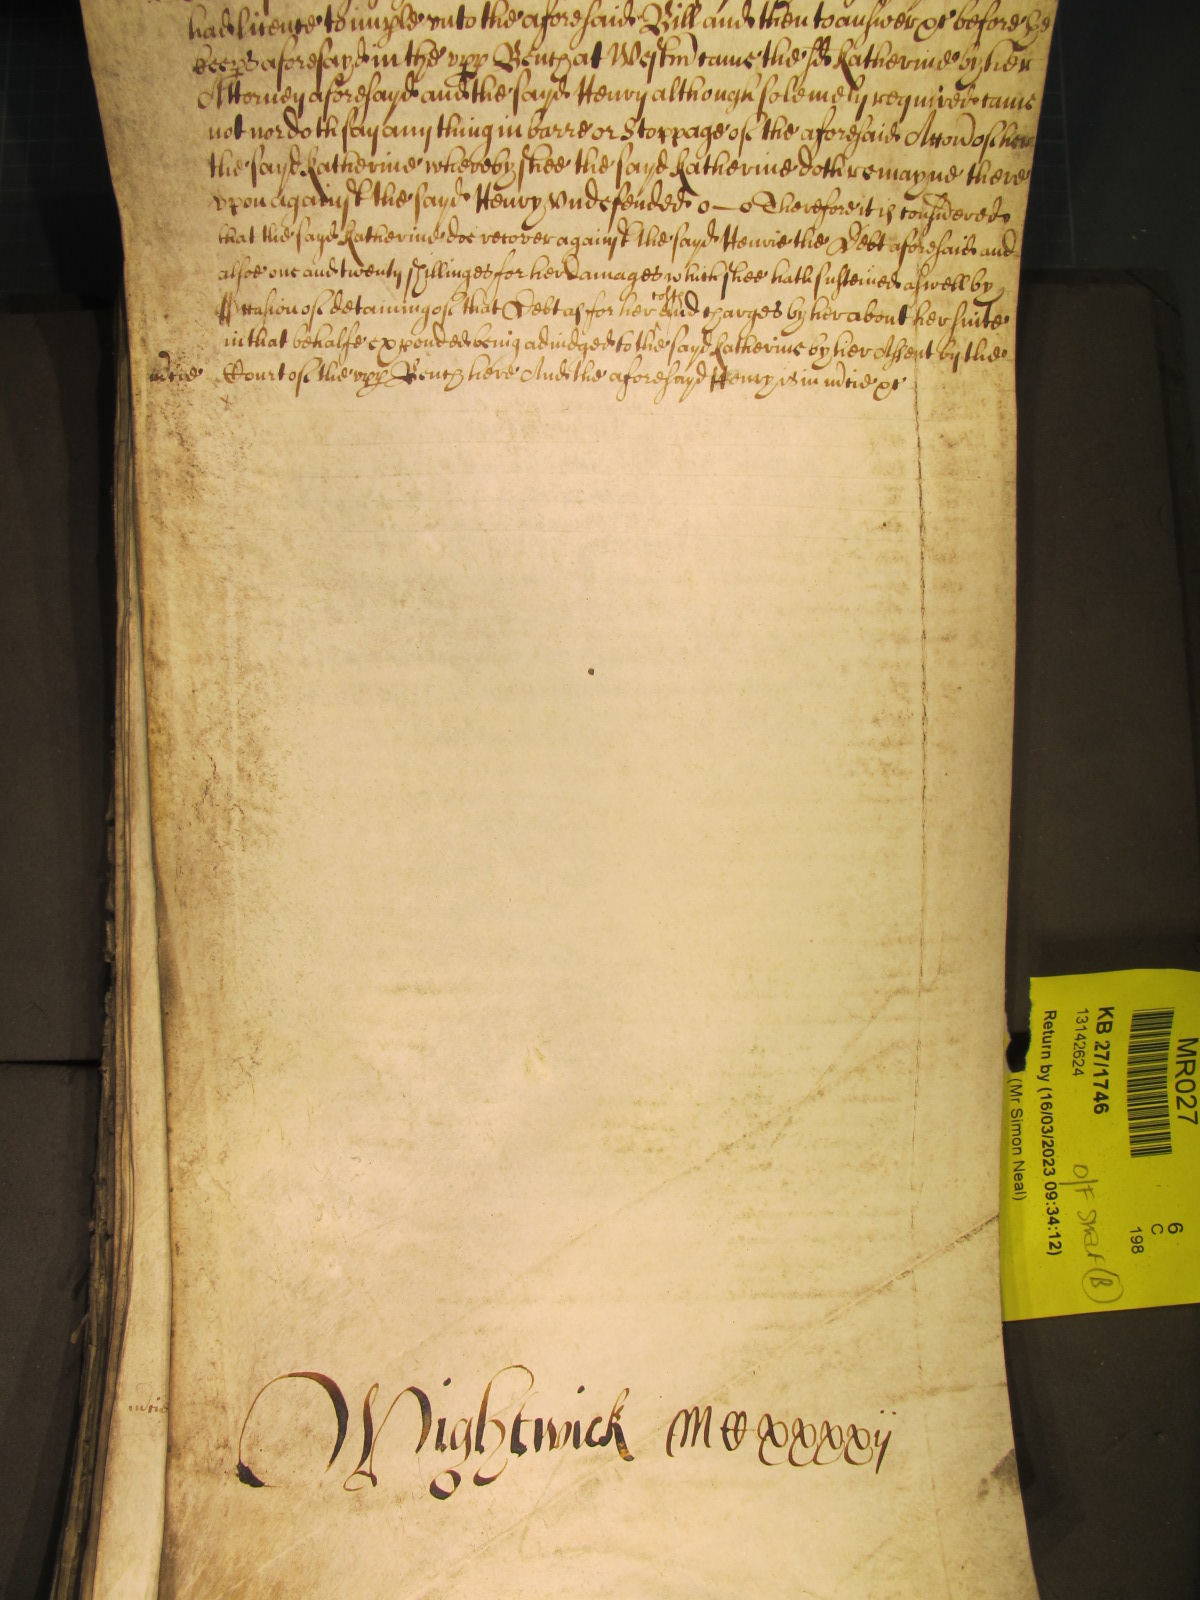 had licence to imple vnto the aforesaid Bill and then to answer &c before the
keep's aforesayd in the vpp Bench at Westm came the sd Katherine by her
Attorney aforesayd and the sayd Henry although solemely required came
not nor doth say any thing in barre or Stoppage of the aforesaid Accon of her
the sayd Katherine whereby shee the sayd Katherine doth remayne there
vpon against the sayd Henry Vndefended o—o Therefore it is considered
that the sayd Katherine doe recover against the sayd Henrie the Debt aforesaid and
alsoe one and twenty shillinges for her Damages which shee hath susteined aswell by
occasion of detaining of that Debt as for her costs and charges by her about her suite
in that behalfe expended being adiudged to the sayd Katherine by her Assent by the
mcie Court of the vpp Bench here And the aforesayd Henry is in mcie &c
mcie
Wightwick MCCxxxxij
MR027
6
C
198
KB 27/1746
13142624
O/F SHELF B
Return by (16/03/2023 09:34:12)
(Mr Simon Neal)